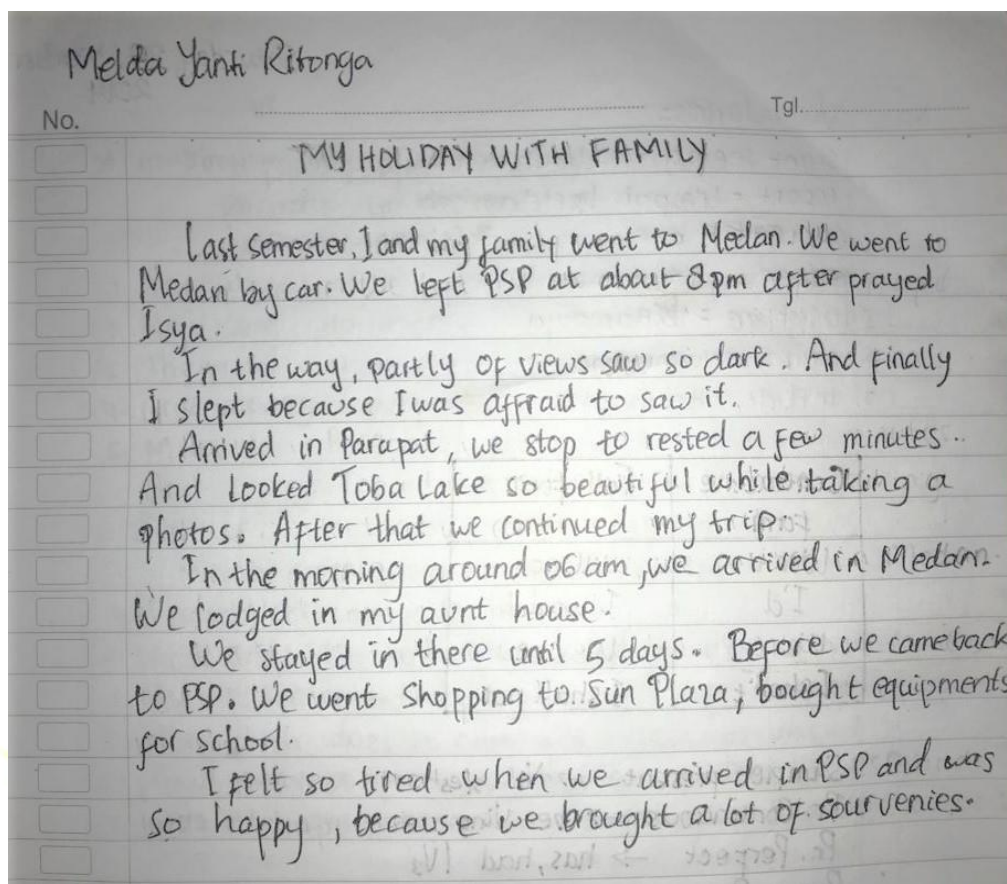 Melda Yanti Ritonga
No.
Tgl.
MY HOLIDAY WITH FAMILY
Last semester, I and my family went to Medan. We went to
Medan by car. We left PSP at about 8pm after prayed
Isya.
In the way, partly of views saw so dark. And finally
I slept because I was affraid to saw it.
Arrived in Parapat, we stop to rested a few minutes..
And looked Toba Lake so beautiful while taking a
photos. After that we continued my trip.
In the morning around 06 am, we arrived in Medan.
We lodged in my aunt house.
We stayed in there until 5 days. Before we came back
to PSP. We went shopping to Sun Plaza, bought equipments
for school.
I felt so tired when we arrived in PSP and was
so happy, because we brought a lot of sourvenies.